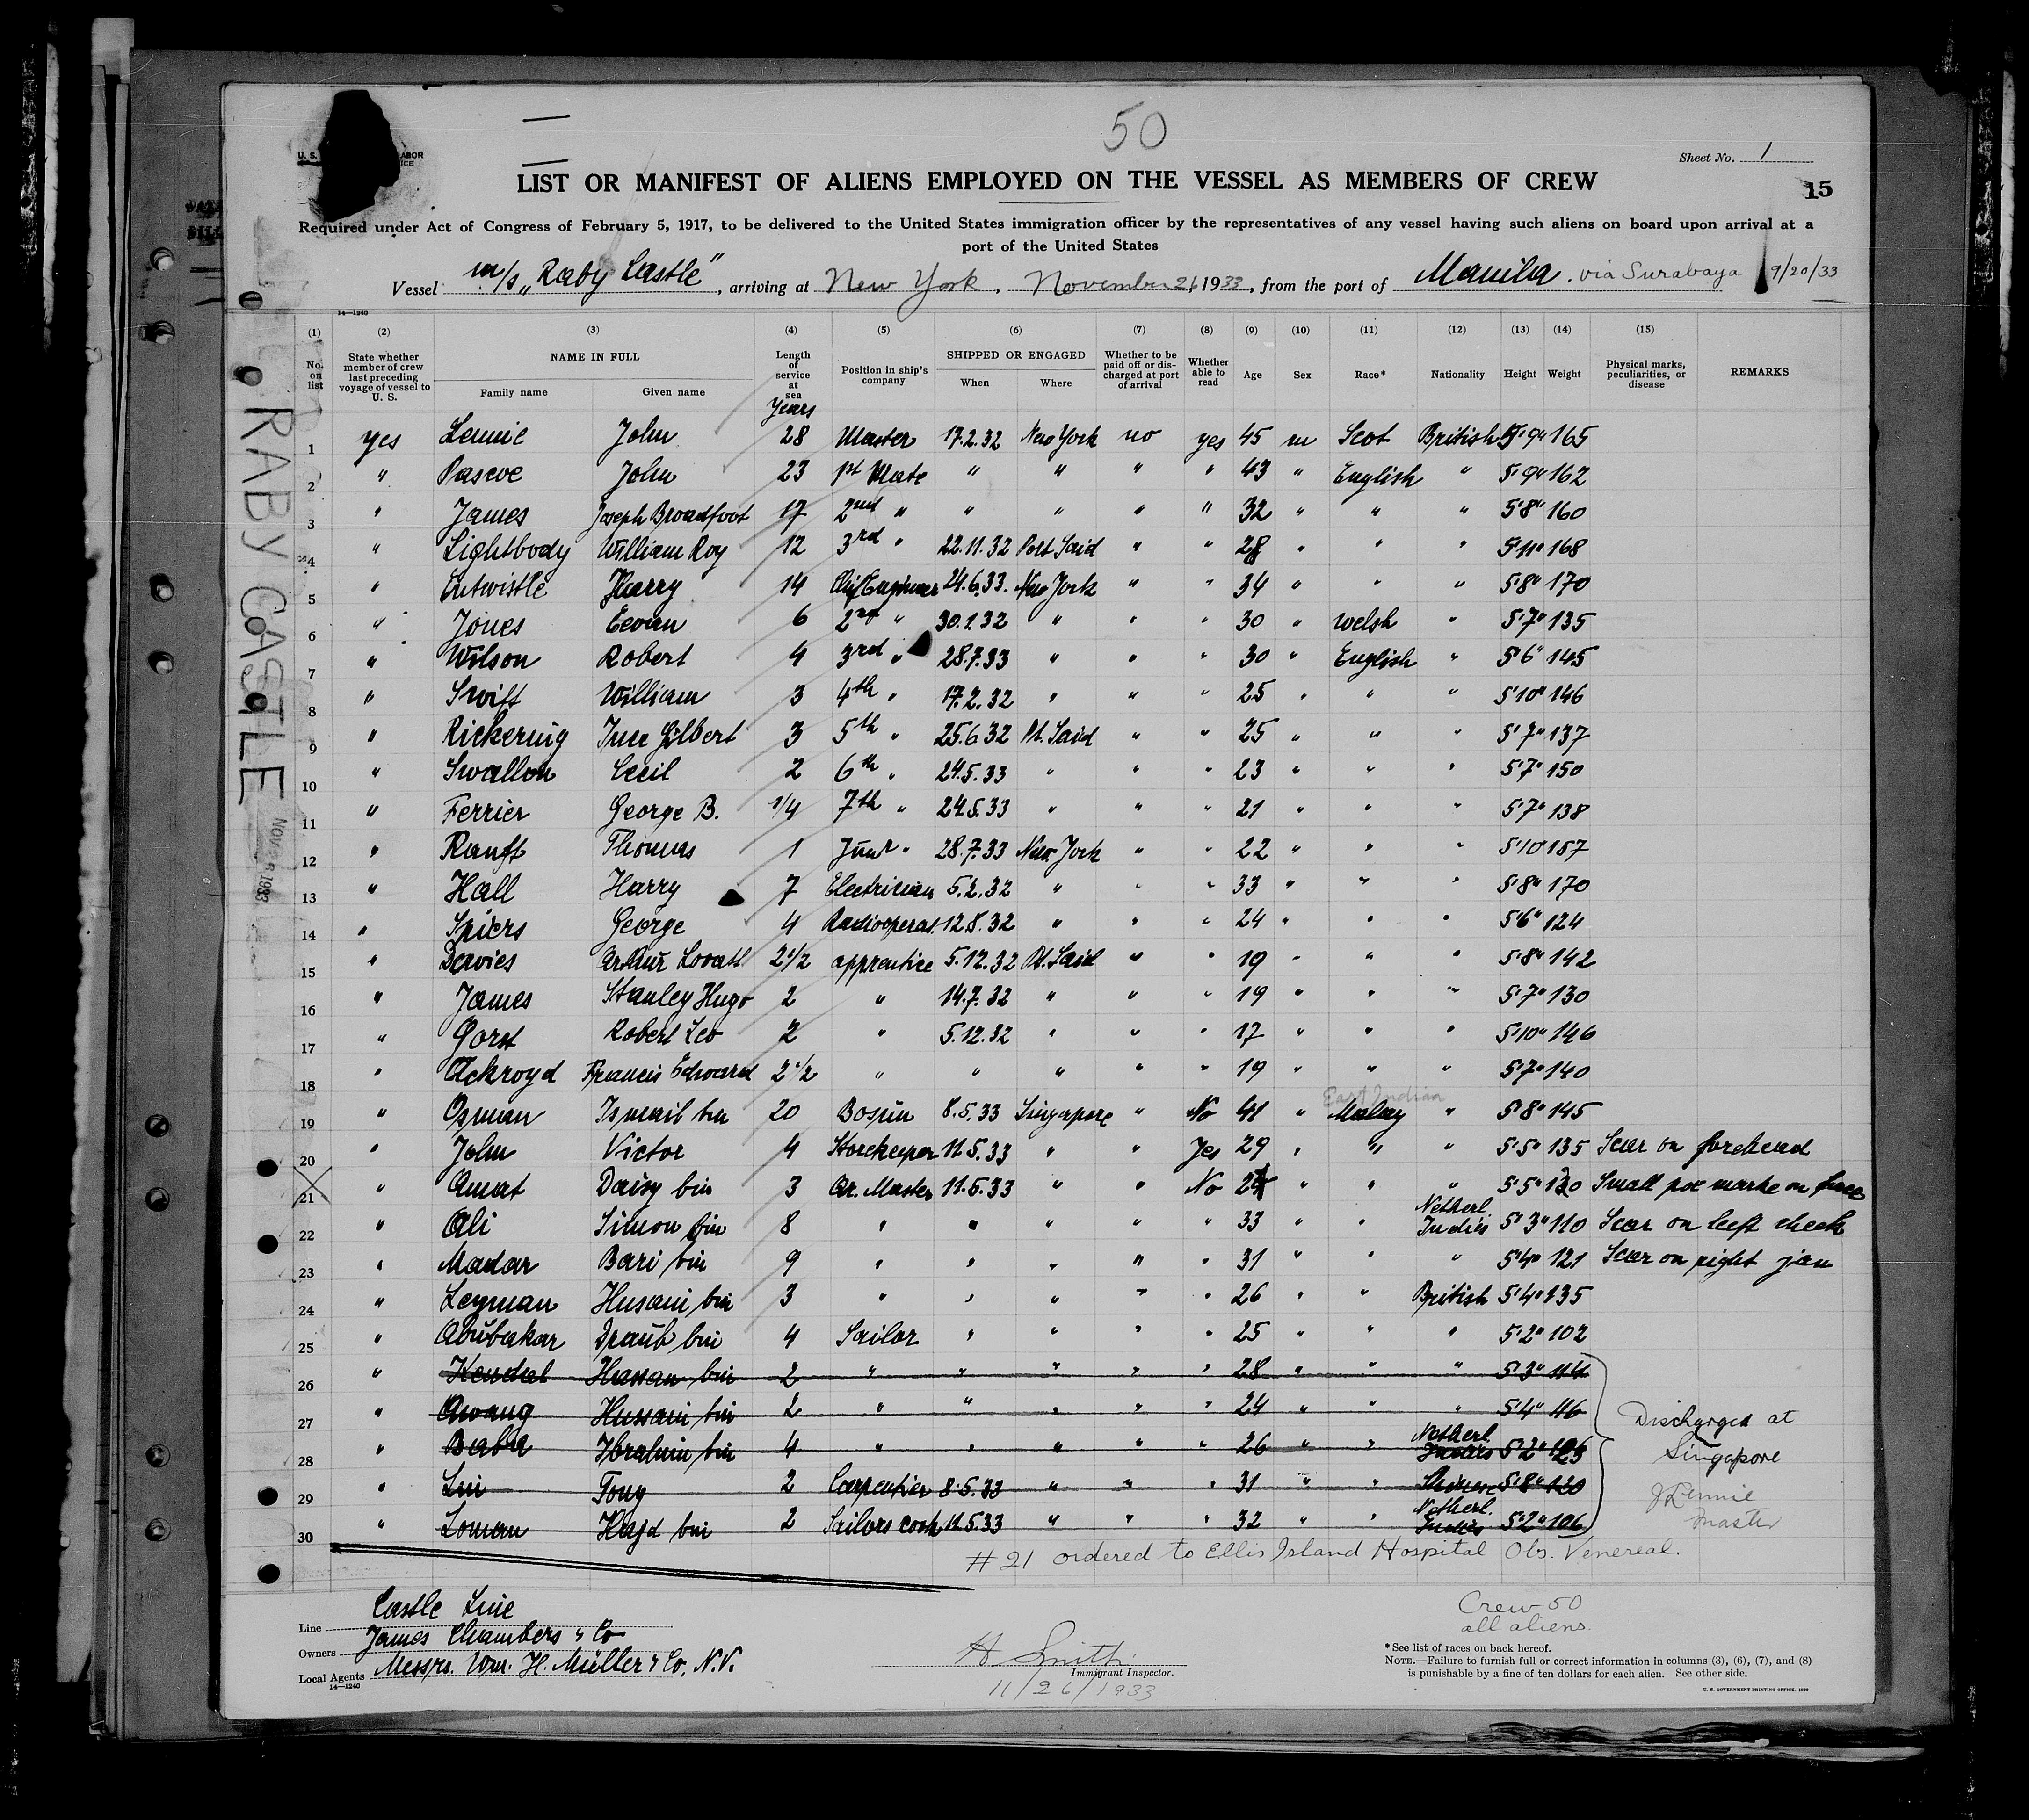 50
Sheet No. 1
U. S.
LABOR
LIST OR MANIFEST OF ALIENS EMPLOYED ON THE VESSEL AS MEMBERS OF CREW
15
Required under Act of Congress of February 5, 1917, to be delivered to the United States immigration officer by the representatives of any vessel having such aliens on board upon arrival at a
port of the United States
Vessel m/s „Raby Castle", arriving at New York, November 26, 1933, from the port of Manila. via Surabaya 9/20/33
14—1240
(1) (2) (3) (4) (5) (6) (7) (8) (9) (10) (11) (12) (13) (14) (15)
No. on list State whether member of crew last preceding voyage of vessel to U. S. NAME IN FULL Family name Given name Length of service at sea Years Position in ship's company SHIPPED OR ENGAGED When Where Whether to be paid off or discharged at port of arrival Whether able to read Age Sex Race* Nationality Height Weight Physical marks, peculiarities, or disease REMARKS
1 yes Lennie John 28 Master 17.2.32 New York no yes 45 m Scot British 5'9" 165
2 " Pascoe John 23 1st Mate " " " " 43 " English " 5'9" 162
3 " James Joseph Broadfoot 17 2nd " " " " " 32 " " " 5'8" 160
4 " Lightbody William Roy 12 3rd " 22.11.32 Port Said " " 28 " " " 5'11" 168
5 " Entwistle Harry 14 Chif Engineer 24.6.33. New York " " 34 " " " 5'8" 170
6 " Jones Eevan 6 2nd " 30.1.32 " " " 30 " Welsh " 5'7" 135
7 " Wilson Robert 4 3rd " 28.7.33 " " " 30 " English " 5'6" 145
8 " Swift William 3 4th " 17.2.32 " " " 25 " " " 5'10" 146
9 " Rickering Ince Gilbert 3 5th " 25.6.32 Pt. Said " " 25 " " " 5'7" 137
10 " Swallow Cecil 2 6th " 24.5.33 " " " 23 " " " 5'7" 150
11 " Ferrier George B. 1/4 7th " 24.5.33 " " " 21 " " " 5'7" 138
12 " Ranft Thomas 1 Junr " 28.7.33 New York " " 22 " " " 5'10" 157
13 " Hall Harry 7 Electrician 5.2.32 " " " 33 " " " 5'8" 170
14 " Spiers George 4 Radiooperat. 12.8.32 " " " 24 " " " 5'6" 124
15 " Davies Arthur Lovatt 2 1/2 apprentice 5.12.32 Pt. Said " " 19 " " " 5'8" 142
16 " James Stanley Hugo 2 " 14.7.32 " " " 19 " " " 5'7" 130
17 " Gorst Robert Leo 2 " 5.12.32 " " " 17 " " " 5'10" 146
18 " Ackroyd Francis Edward 2 1/2 " " " " " 19 " " " 5'7" 140
East Indian
19 " Osman Ismail bin 20 Bosun 8.5.33 Singapore " No 41 " Malay " 5'8" 145
20 " John Victor 4 Storekeeper 11.5.33 " " Yes 29 " " " 5'5" 135 Scar on forehead
21 " Amat Daisy bin 3 Qr. Master 11.5.33 " " No 24 " " " 5'5" 130 Small pox marks on face
22 " Ali Simon bin 8 " " " " " 33 " " Netherl. Indies 5'3" 110 Scar on left cheek
23 " Madar Bari bin 9 " " " " " 31 " " " 5'4" 121 Scar on right jaw
24 " Leyman Husani bin 3 " " " " " 26 " " British 5'4" 135
25 " Abubakar Draub bin 4 Sailor " " " " 25 " " " 5'2" 102
26 " Kendal Hassan bin 2 " " " " " 28 " " " 5'3" 114
27 " Awang Hussain bin 2 " " " " " 24 " " " 5'4" 116
28 " Baba Ibrahim bin 4 " " " " " 26 " " Netherl. Indies 5'2"
29 " Lin Tong 2 Carpentier 8.5.33 " " " 31 " " Chinese 5'8" 120
30 " Loman Hajd bin 2 Sailors cook 11.5.33 " " " 32 " " Netherl. Indies 5'2" 106
Discharged at
Singapore
J Lennie
Master
# 21 ordered to Ellis Island Hospital Obs. Venereal.
Line Castle Line
Owners James Chambers & Co
Local Agents Messrs. Wm. H. Müller & Co, N.V.
14—1240
H Smith
Immigrant Inspector.
11/26/1933
Crew 50
all aliens.
*See list of races on back hereof.
NOTE.—Failure to furnish full or correct information in columns (3), (6), (7), and (8)
is punishable by a fine of ten dollars for each alien. See other side.
U. S. GOVERNMENT PRINTING OFFICE. 1929
RABY CASTLE